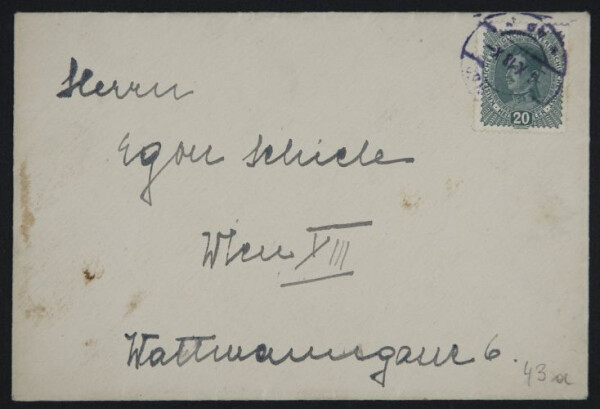 Herrn
Egon Schiele
Wien XIII
Wattmanngasse 6.
43a
20